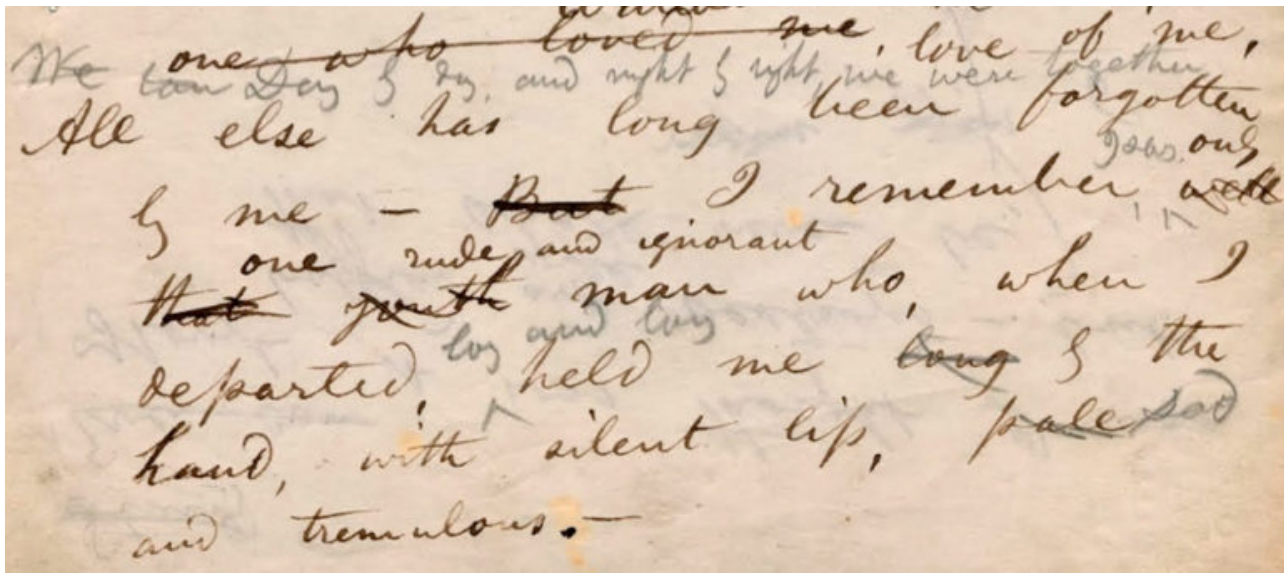 one who loved me, love of me,
We can Day by day, and night by night, we were together,
All else has long been forgotten
I say. only
by me — But I remember, well
one rude and ignorant
that youth man who, when I
long and long
departed, held me long by the
hand, with silent lip, pale sad
and tremulous.—